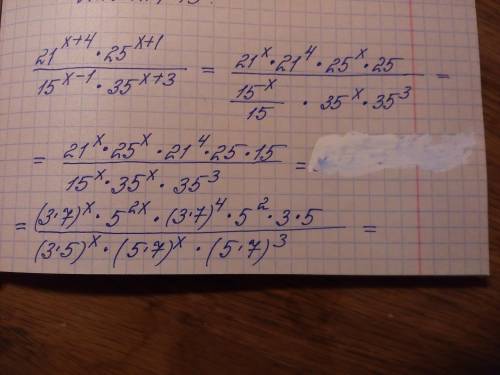 \frac{21^{x+4} \cdot 25^{x+1}}{15^{x-1} \cdot 35^{x+3}} = \frac{21^x \cdot 21^4 \cdot 25^x \cdot 25}{\frac{15^x}{15} \cdot 35^x \cdot 35^3} =
= \frac{21^x \cdot 25^x \cdot 21^4 \cdot 25 \cdot 15}{15^x \cdot 35^x \cdot 35^3} =
= \frac{(3 \cdot 7)^x \cdot 5^{2x} \cdot (3 \cdot 7)^4 \cdot 5^2 \cdot 3 \cdot 5}{(3 \cdot 5)^x \cdot (5 \cdot 7)^x \cdot (5 \cdot 7)^3} =